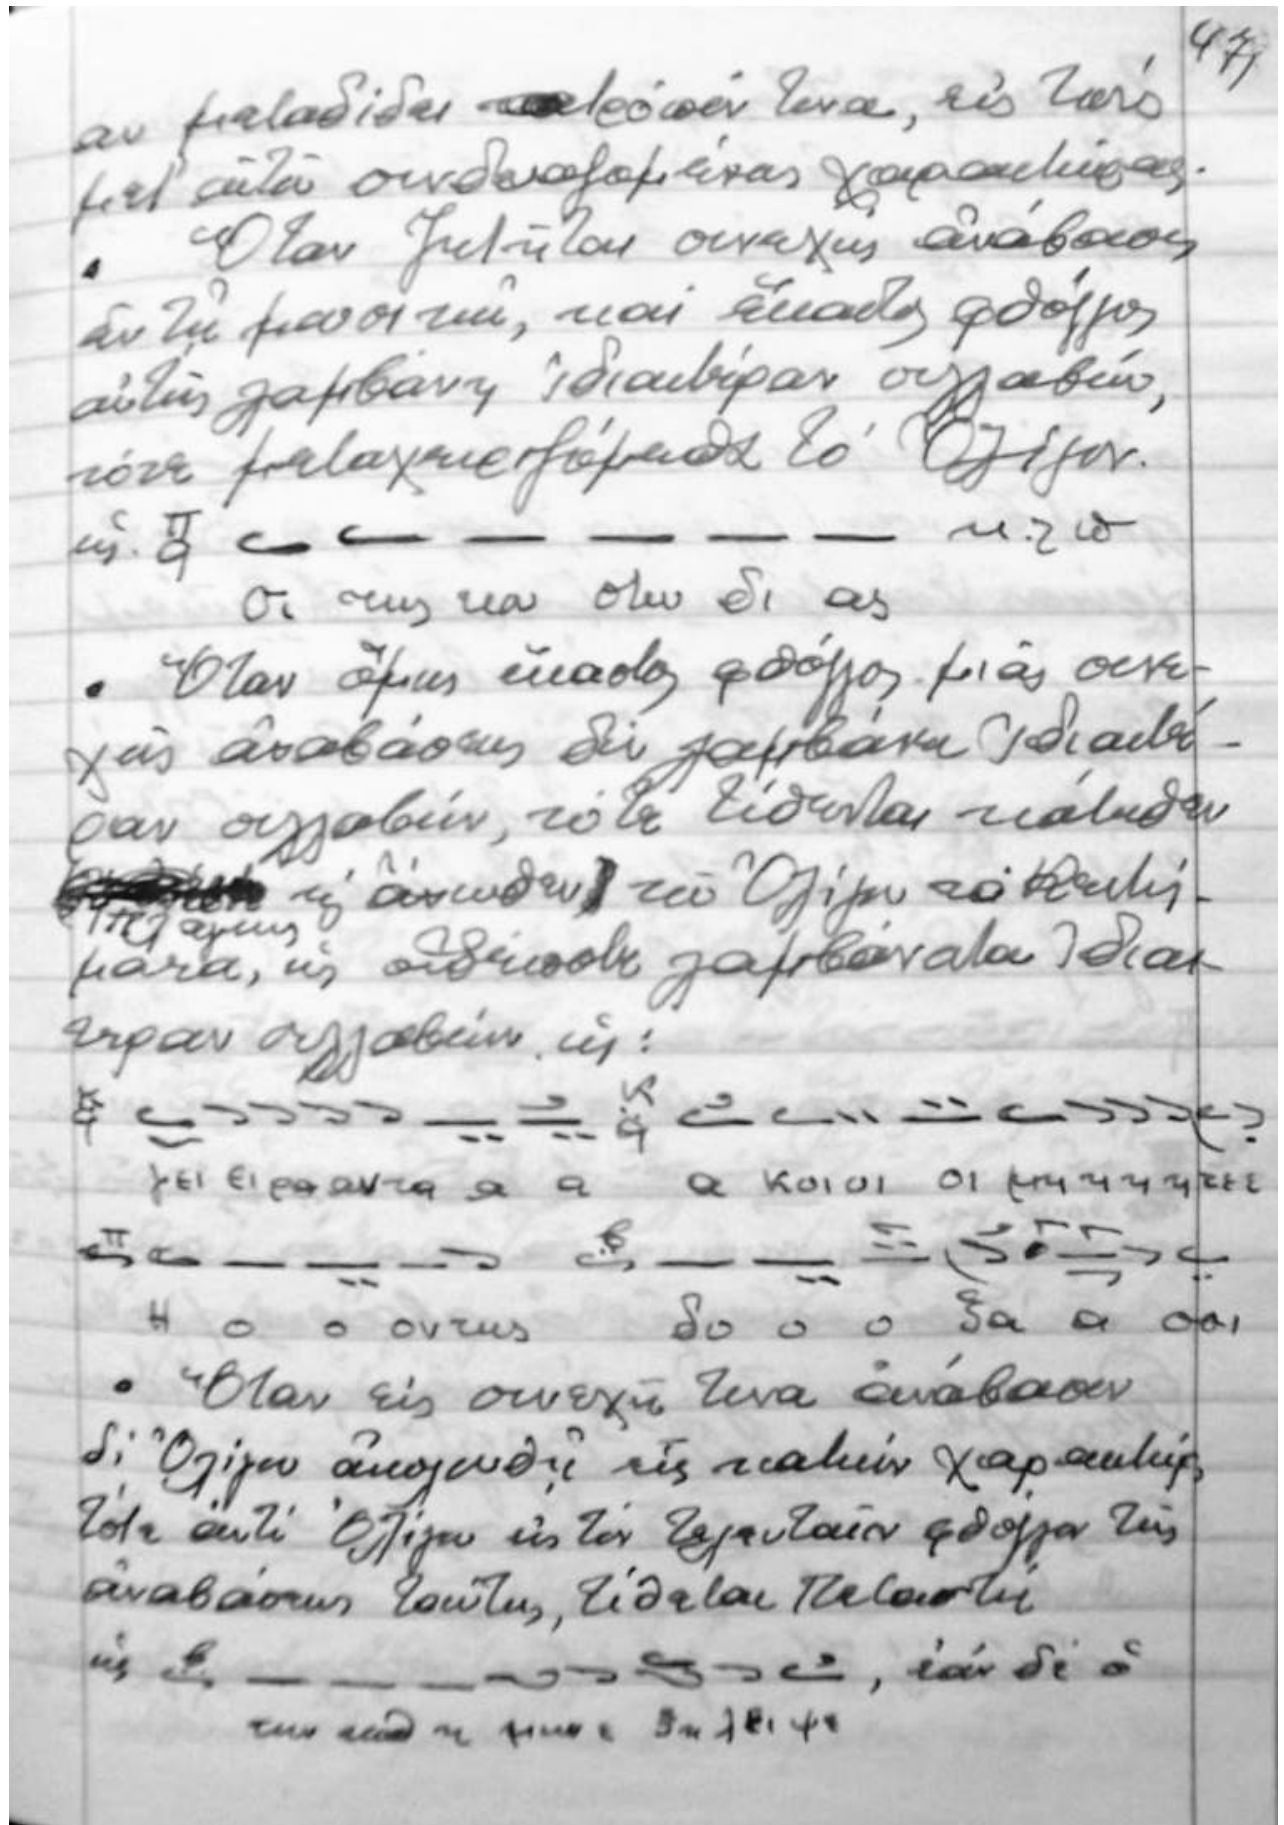 47
αν μεταδίδει τρόπόν τινα, εἰς τούς
μετ' αὐτῶν συνδυαζομένους χαρακτῆρας.
• Ὅταν ζητῆται συνεχής ἀνάβασις
ἐν τῇ μουσικῇ, καί ἕκαστος φθόγγος
αὐτῆς λαμβάνῃ ἰδιαιτέραν συλλαβήν,
τότε μεταχειριζόμεθα τό Ὀλίγον.
ὡς. κ.ζω
οι κησκα στω δι ας
• Ὅταν ὅμως ἕκαστος φθόγγος μιᾶς συνε-
χοῦς ἀναβάσεως δέν λαμβάνει ἰδιαιτέ-
ραν συλλαβήν, τότε τίθενται κάτωθεν
ἤ ἄνωθεν τοῦ Ὀλίγου τά Κεντή-
ματα, ὡς οὐδέποτε λαμβάνοντα ἰδιαι-
τέραν συλλαβήν. ὡς:
γει ειρααντα α α α κοιοι οι μηηηητεε
Η ο ο οντως δο ο ο ξα α σοι
• Ὅταν εἰς συνεχῆ τινα ἀνάβασιν
δι' Ὀλίγου ἀκολουθῇ εἷς κατιών χαρακτήρ,
τότε ἀντί Ὀλίγου εἰς τόν τελευταῖον φθόγγον τῆς
ἀναβάσεως ταύτης, τίθεται Πεταστή
ὡς , ἐάν δέ ὁ